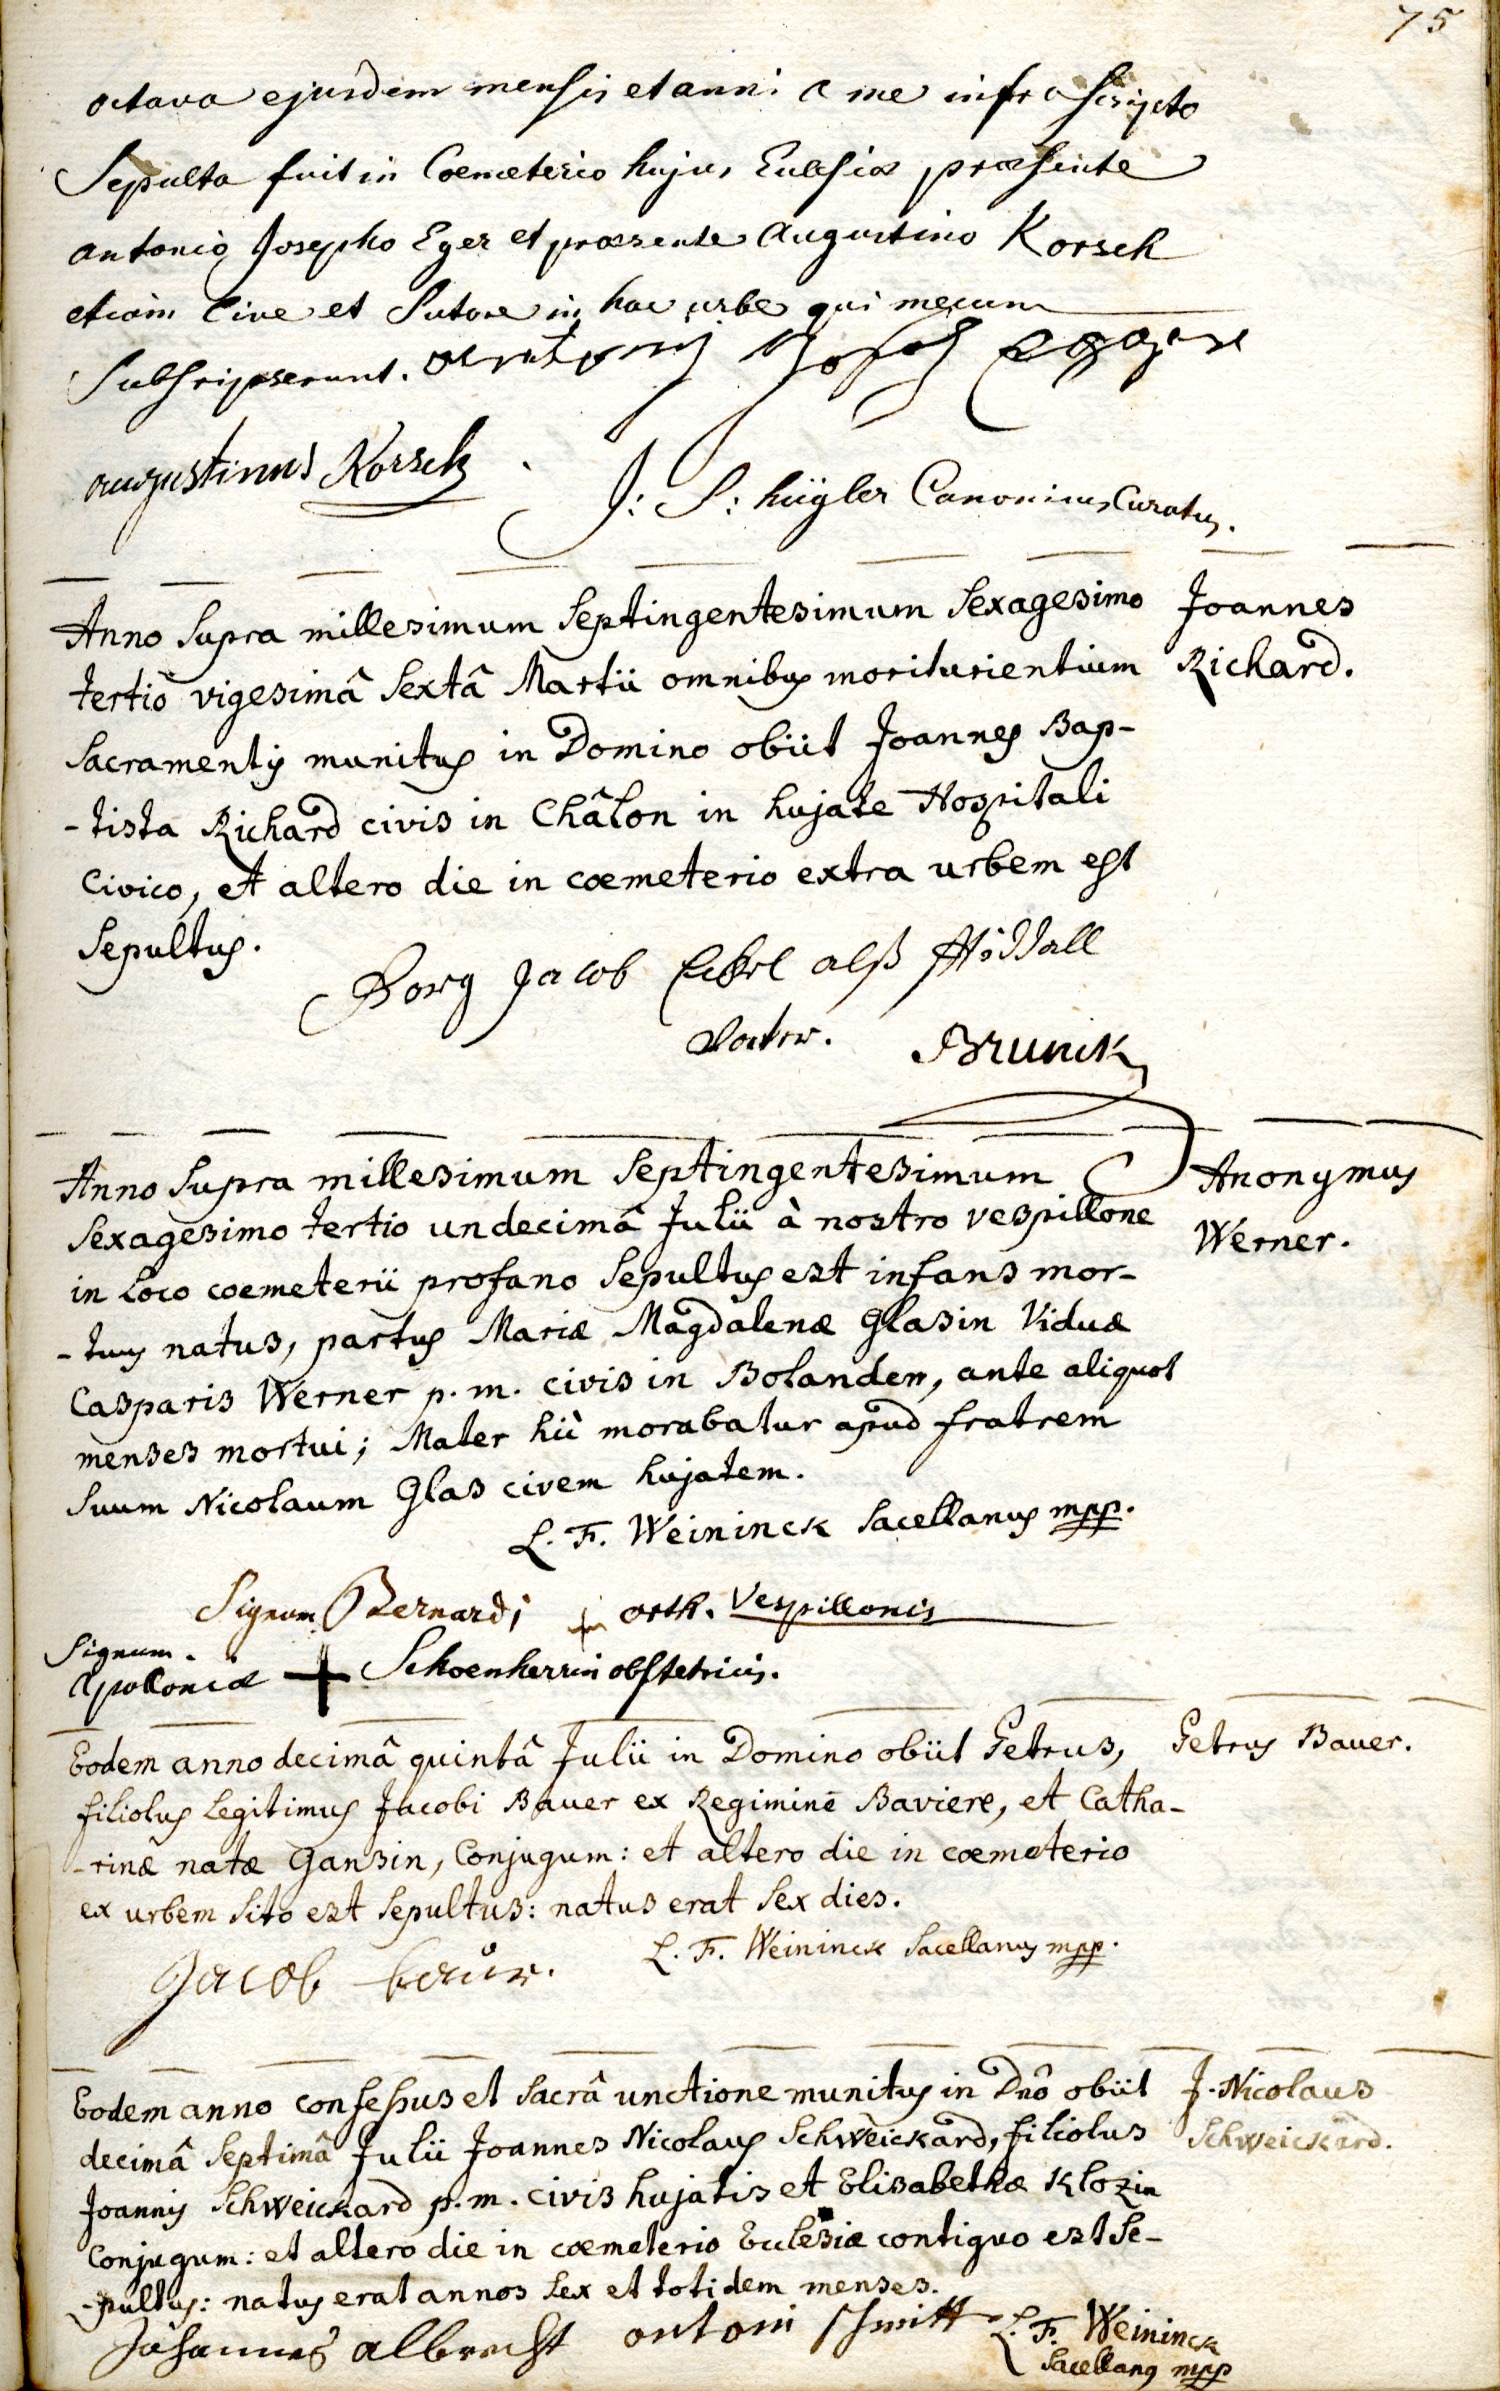 75
octava ejusdem mensis et anni a me infra scripto
Sepulta fuit in Coemeterio hujus Eclesiæ præsente
antonio Josepho Eger et præsente Augustino Korsch
etiam Cive et Sutore in hac urbe qui mecum
Subscripserunt. antoni Joseph Egger
augustinus Korsch
J: S: hügler Canonicus Curatus.
Anno Supra millesimum Septingentesimum Sexagesimo
Joannes
tertiô vigesimâ Sextâ Martii omnibus moriturientium
Richard.
Sacramentis munitus in Domino obiit Joannes Bap-
-tista Richard civis in Châlon in hujate Hospitali
Civico, et altero die in coemeterio extra urbem est
Sepultus.
Jacob alß
Vatter. Brunck
Anno Supra millesimum Septingentesimum
Anonymus
Sexagesimo tertio undecimâ Julii à nostro vespillone
Werner.
in Loco coemeterii profano Sepultus est infans mor-
-tuus natus, partus Mariæ Magdalenæ Glasin Viduæ
Casparis Werner p. m. civis in Bolanden, ante aliquot
menses mortui; Mater hîc morabatur apud fratrem
Suum Nicolaum Glas civem hujatem.
L. F. Weininck Sacellanus mpp.
Signum Bernardi + orth. Vespillonis
Signum.
Apolloniæ + Schoenherrin obstetricis.
Eodem anno decimâ quintâ Julii in Domino obiit Petrus,
Petrus Bauer.
filiolus Legitimus Jacobi Bauer ex Regimine Baviere, et Catha-
-rinæ natæ Gansin, Conjugum: et altero die in coemeterio
ex urbem Sito est Sepultus: natus erat Sex dies.
L. F. Weininck Sacellanus mpp.
Jacob baür.
Eodem anno confessus et Sacrâ unctione munitus in Dnô obiit
J. Nicolaus
decimâ Septimâ Julii Joannes Nicolaus Schweickard, filiolus
Schweickard.
Joannis Schweickard p. m. civis hujatis et Elisabethæ Klozin
Conjugum: et altero die in coemeterio Ecclesiæ contiguo est Se-
-pultus: natus erat annos Sex et totidem menses.
Johannes albrecht antoni schmitt L. F. Weininck
Sacellanus mpp